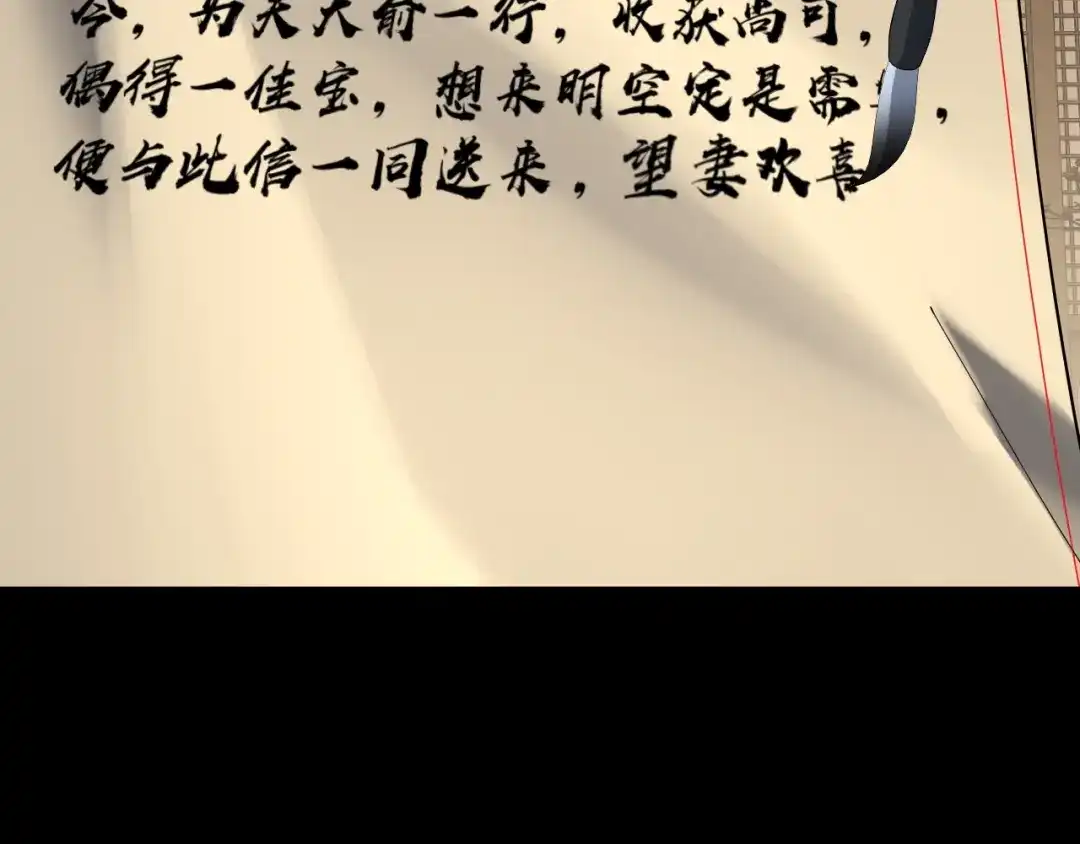 今，为夫大俞一行，收获尚可，
偶得一佳宝，想来明空定是需，
便与此信一同送来，望妻欢喜